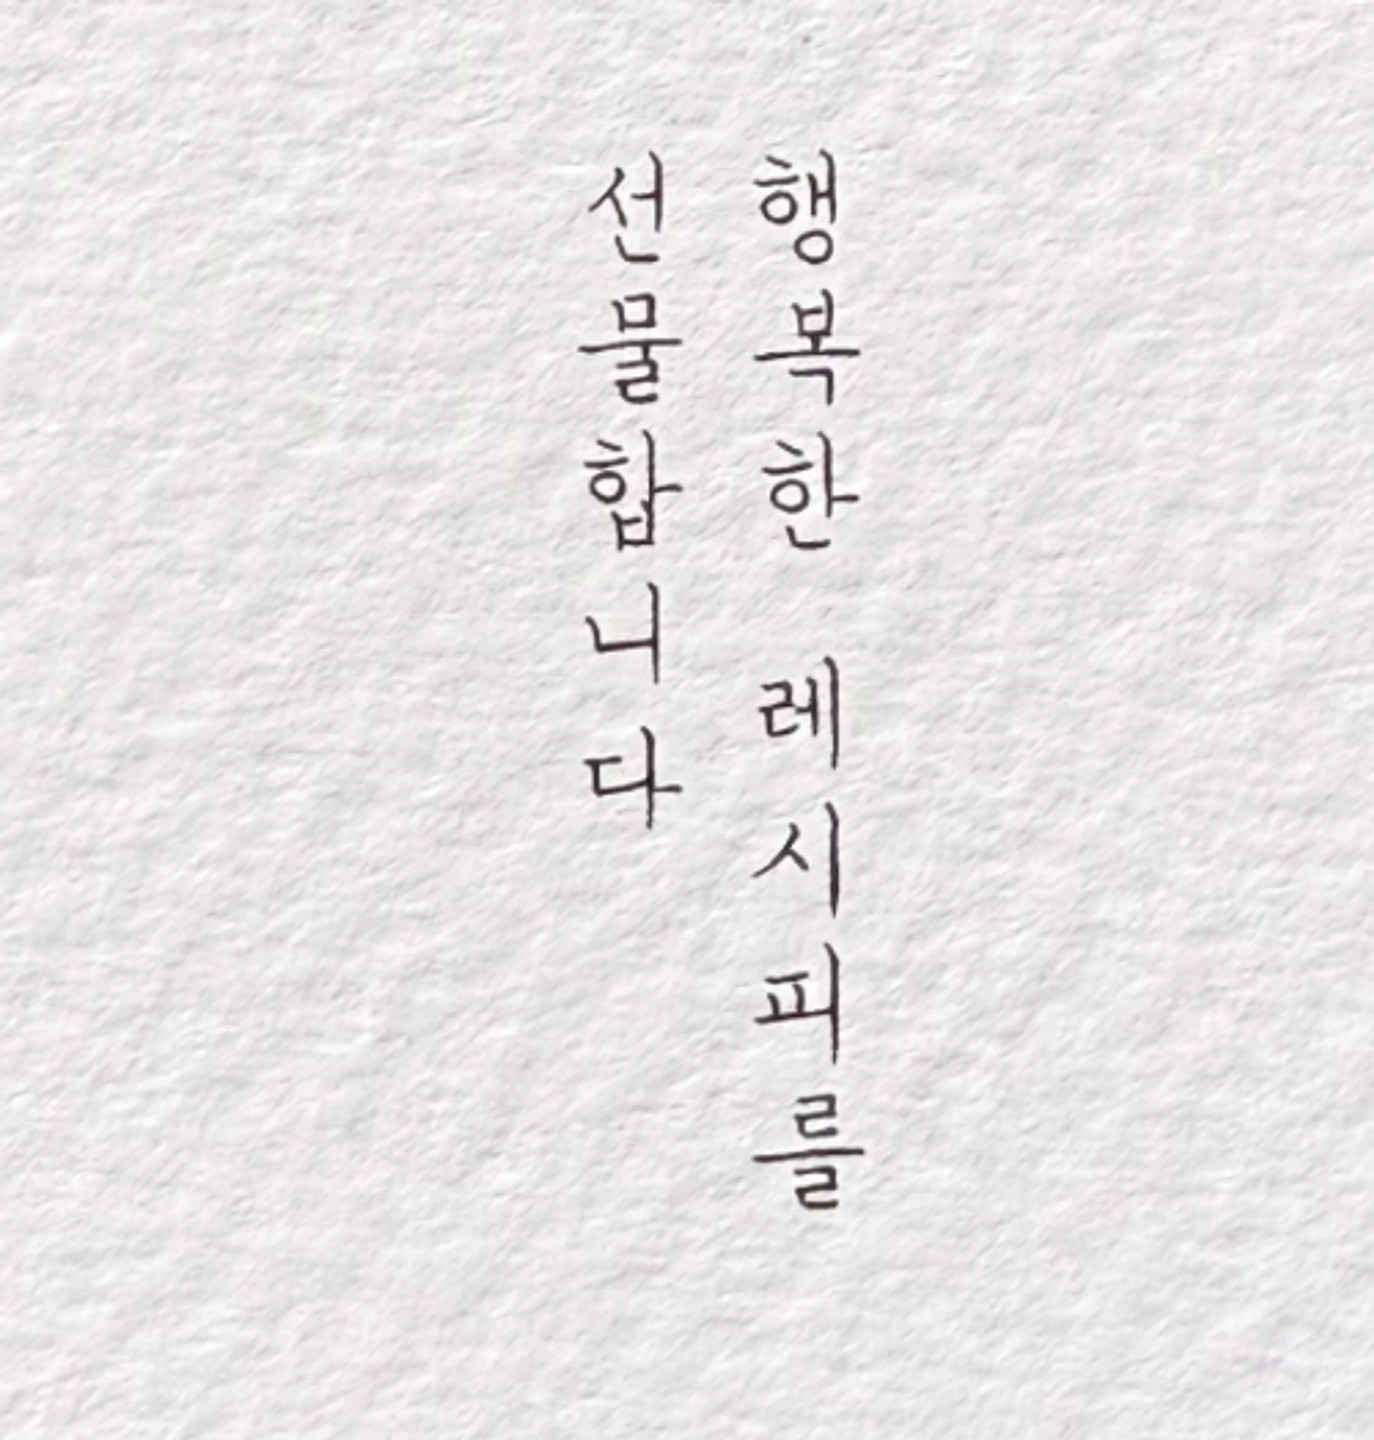 행복한 레시피를
선물합니다